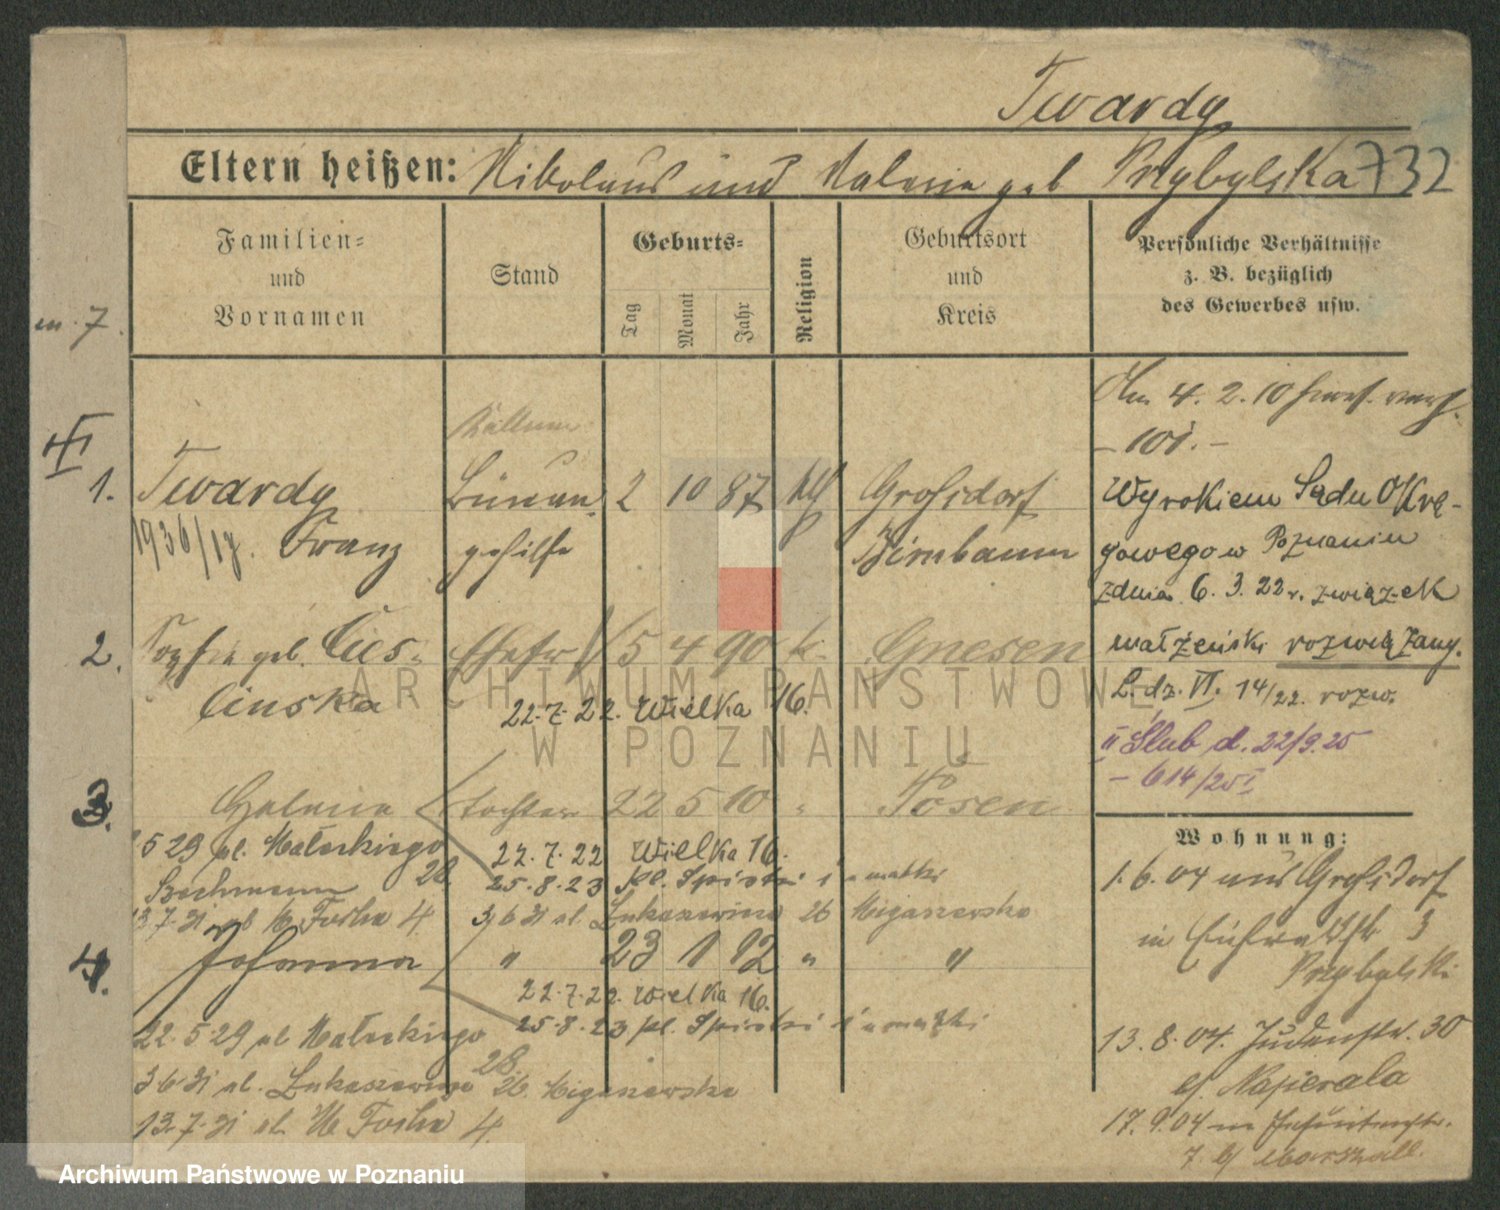 Twardy
Eltern heißen: Nikolaus und Valeria geb Przybylska 732
Familien=
und
Vornamen
Stand
Geburts=
Tag
Monat
Jahr
Religion
Geburtsort
und
Kreis
Persönliche Verhältnisse
z. B. bezüglich
des Gewerbes usw.
m. 7.
III
1. Twardy
1936/17. Franz
Kellner
Büreau
gehilfe
2 10 87 kth
Großdorf
Birnbaum
Am 4. 2. 10
Wyrokiem Sądu Okrę-
gowego w Poznaniu
z dnia 6. 3. 22 r. związek
małżeński rozwiązany.
L. dz. VI. 14/22. rozw.
II Ślub d. 22/9.25
- 614/25 I
2. Sophia geb. Cies-
linska
Ehefr 5 4 90 k. Gnesen
22.7.22. Wielka 16.
3. Helena Tochter 22 5 10 " Posen
22.7.22 Wielka 16.
25.8.23 pl.
5 29 pl. Małeckiego
28.
13.7.31 M Focha 4
3 6 31 ul. Łukaszewicza 26
4. Johanna " 23 1 12 " "
22.7.22. Wielka 16.
25.8.23 pl.
22.5.29 pl Małeckiego
28.
3 6 31 ul. Łukaszewicza 26.
13.7.31 ul. M Focha 4
Wohnung:
1.6.04 aus Großdorf
in 3
Przybylski
13.8.04. Judenstr. 30
bei Napierala
17.9.04
7. b/ Marszall.
ARCHIWUM PAŃSTWOWE
W POZNANIU
Archiwum Państwowe w Poznaniu